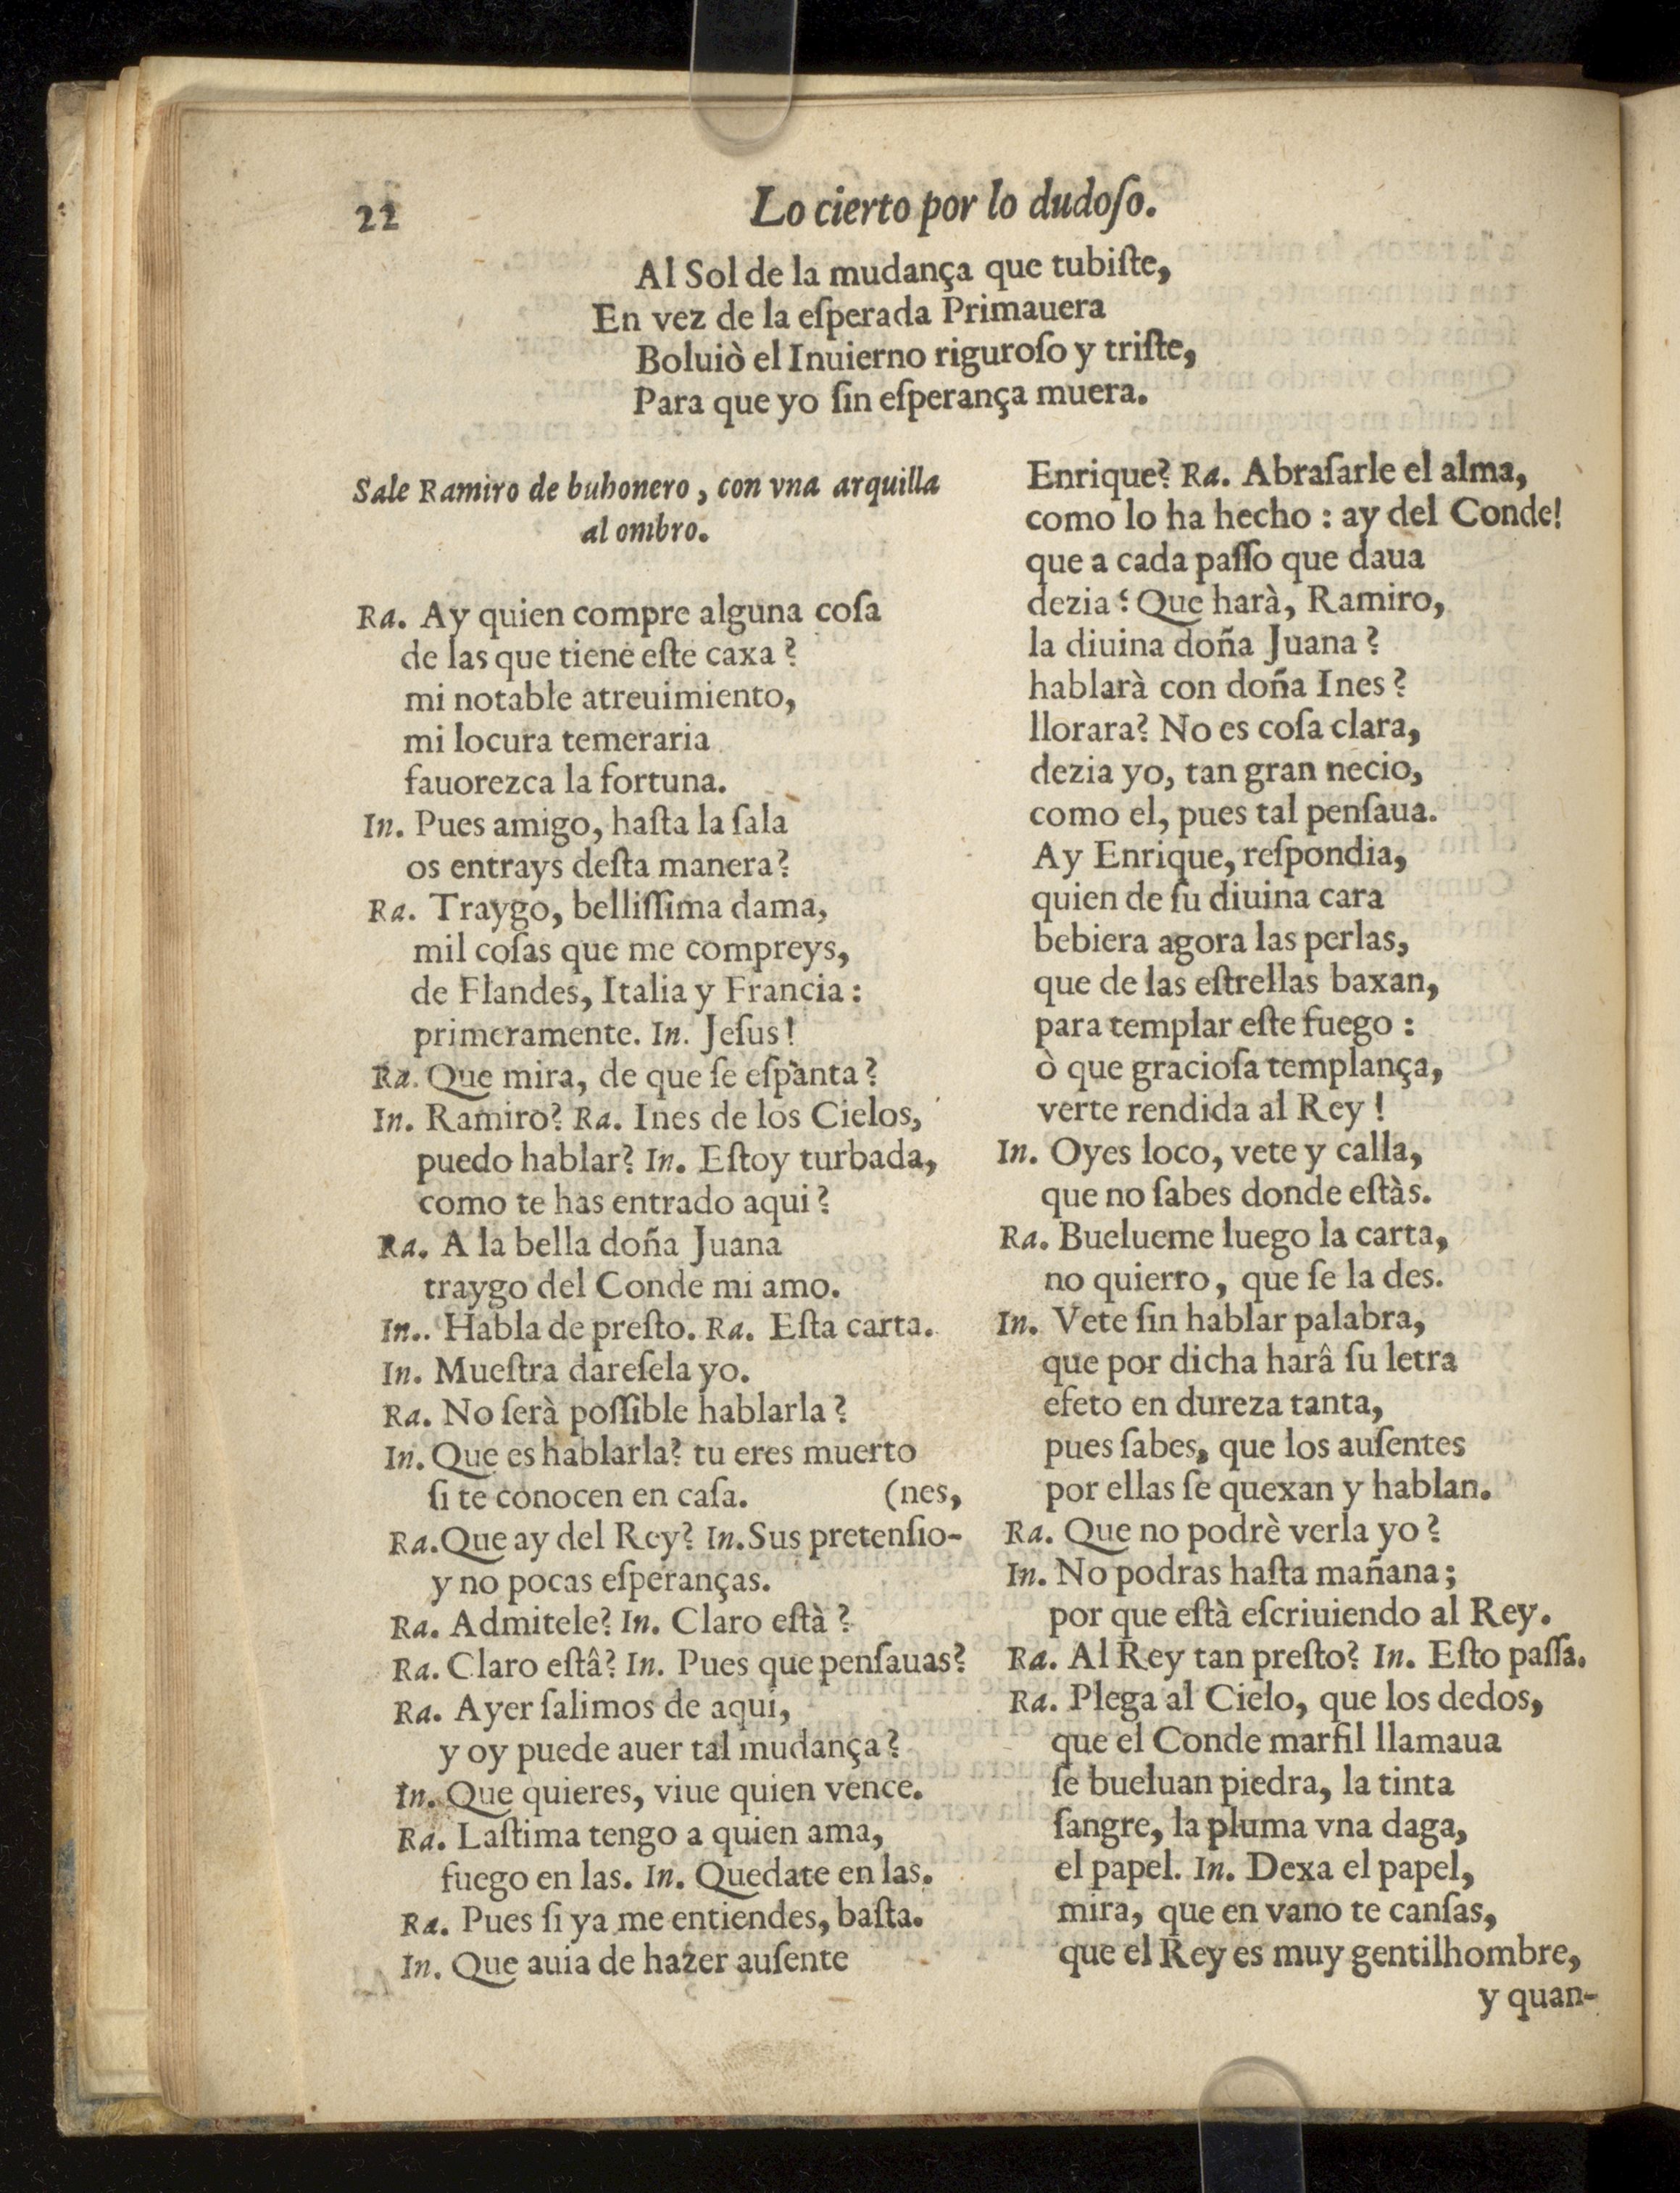 22
Lo cierto por lo dudoſo.
Al Sol de la mudança que tubiſte,
En vez de la eſperada Primauera
Boluiò el Inuierno riguroſo y triſte,
Para que yo ſin eſperança muera.
Sale Ramiro de buhonero, con vna arquilla
al ombro.
Ra. Ay quien compre alguna coſa
de las que tiene eſte caxa?
mi notable atreuimiento,
mi locura temeraria
fauorezca la fortuna.
In. Pues amigo, haſta la ſala
os entrays deſta manera?
Ra. Traygo, belliſſima dama,
mil coſas que me compreys,
de Flandes, Italia y Francia:
primeramente. In. Jeſus!
Ra. Que mira, de que ſe eſpanta?
In. Ramiro? Ra. Ines de los Cielos,
puedo hablar? In. Eſtoy turbada,
como te has entrado aqui?
Ra. A la bella doña Juana
traygo del Conde mi amo.
In.. Habla de preſto. Ra. Eſta carta.
In. Mueſtra dareſela yo.
Ra. No ſerà poſſible hablarla?
In. Que es hablarla? tu eres muerto
ſi te conocen en caſa. (nes,
Ra. Que ay del Rey? In. Sus pretenſio-
y no pocas eſperanças.
Ra. Admitele? In. Claro eſtà?
Ra. Claro eſtâ? In. Pues que penſauas?
Ra. Ayer ſalimos de aqui,
y oy puede auer tal mudança?
In. Que quieres, viue quien vence.
Ra. Laſtima tengo a quien ama,
fuego en las. In. Quedate en las.
Ra. Pues ſi ya me entiendes, baſta.
In. Que auia de hazer auſente
Enrique? Ra. Abraſarle el alma,
como lo ha hecho: ay del Conde!
que a cada paſſo que daua
dezia: Que harà, Ramiro,
la diuina doña Juana?
hablarà con doña Ines?
llorara? No es coſa clara,
dezia yo, tan gran necio,
como el, pues tal penſaua.
Ay Enrique, reſpondia,
quien de ſu diuina cara
bebiera agora las perlas,
que de las eſtrellas baxan,
para templar eſte fuego:
ò que gracioſa templança,
verte rendida al Rey!
In. Oyes loco, vete y calla,
que no ſabes donde eſtàs.
Ra. Buelueme luego la carta,
no quierro, que ſe la des.
In. Vete ſin hablar palabra,
que por dicha harâ ſu letra
efeto en dureza tanta,
pues ſabes, que los auſentes
por ellas ſe quexan y hablan.
Ra. Que no podrè verla yo?
In. No podras haſta mañana;
por que eſtà eſcriuiendo al Rey.
Ra. Al Rey tan preſto? In. Eſto paſſa.
Ra. Plega al Cielo, que los dedos,
que el Conde marfil llamaua
ſe bueluan piedra, la tinta
ſangre, la pluma vna daga,
el papel. In. Dexa el papel,
mira, que en vano te canſas,
que el Rey es muy gentilhombre,
y quan-